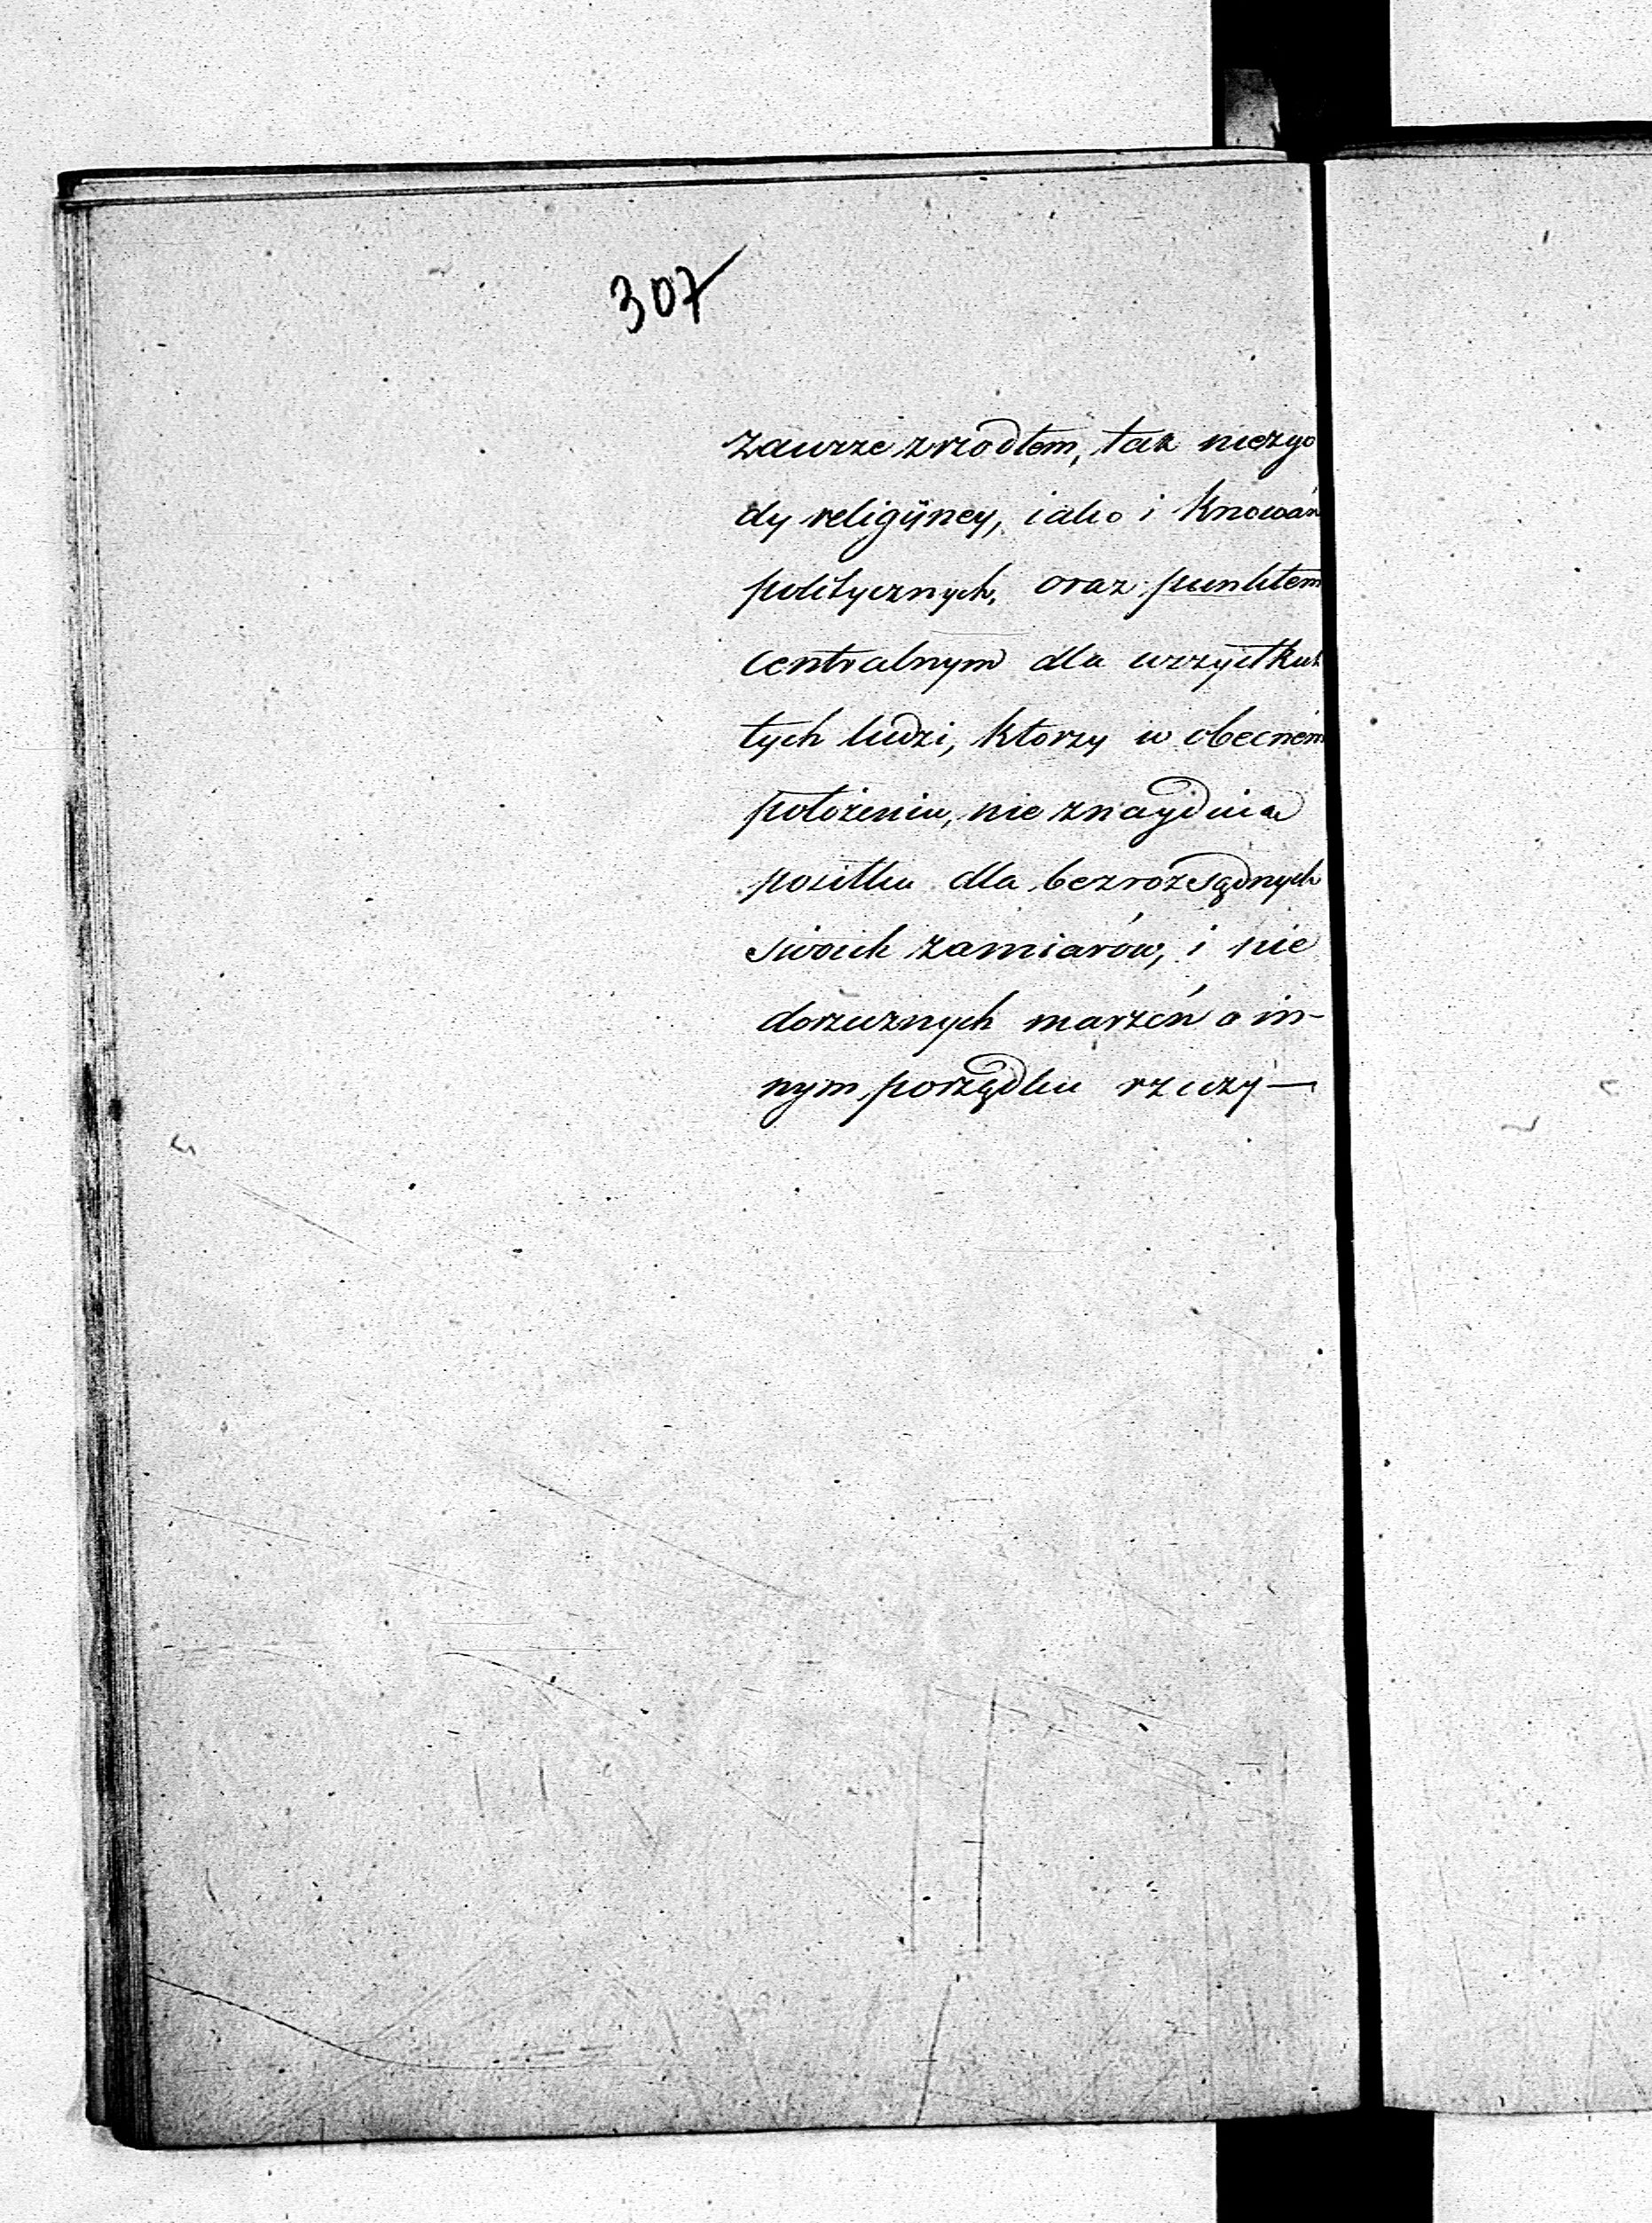 307
zawsze zrzodłem, tak niezgo
dy religijney, iako i knowań
politycznych, oraz punktem
centralnym dla wszystkich
tych ludzi, ktorzy w obecném
położeniu, nie znayduią
positku dla bezrozsądnych
swoich zamiarów, i nie
dorzecznych marzeń o in-
nym porządku rzeczy —